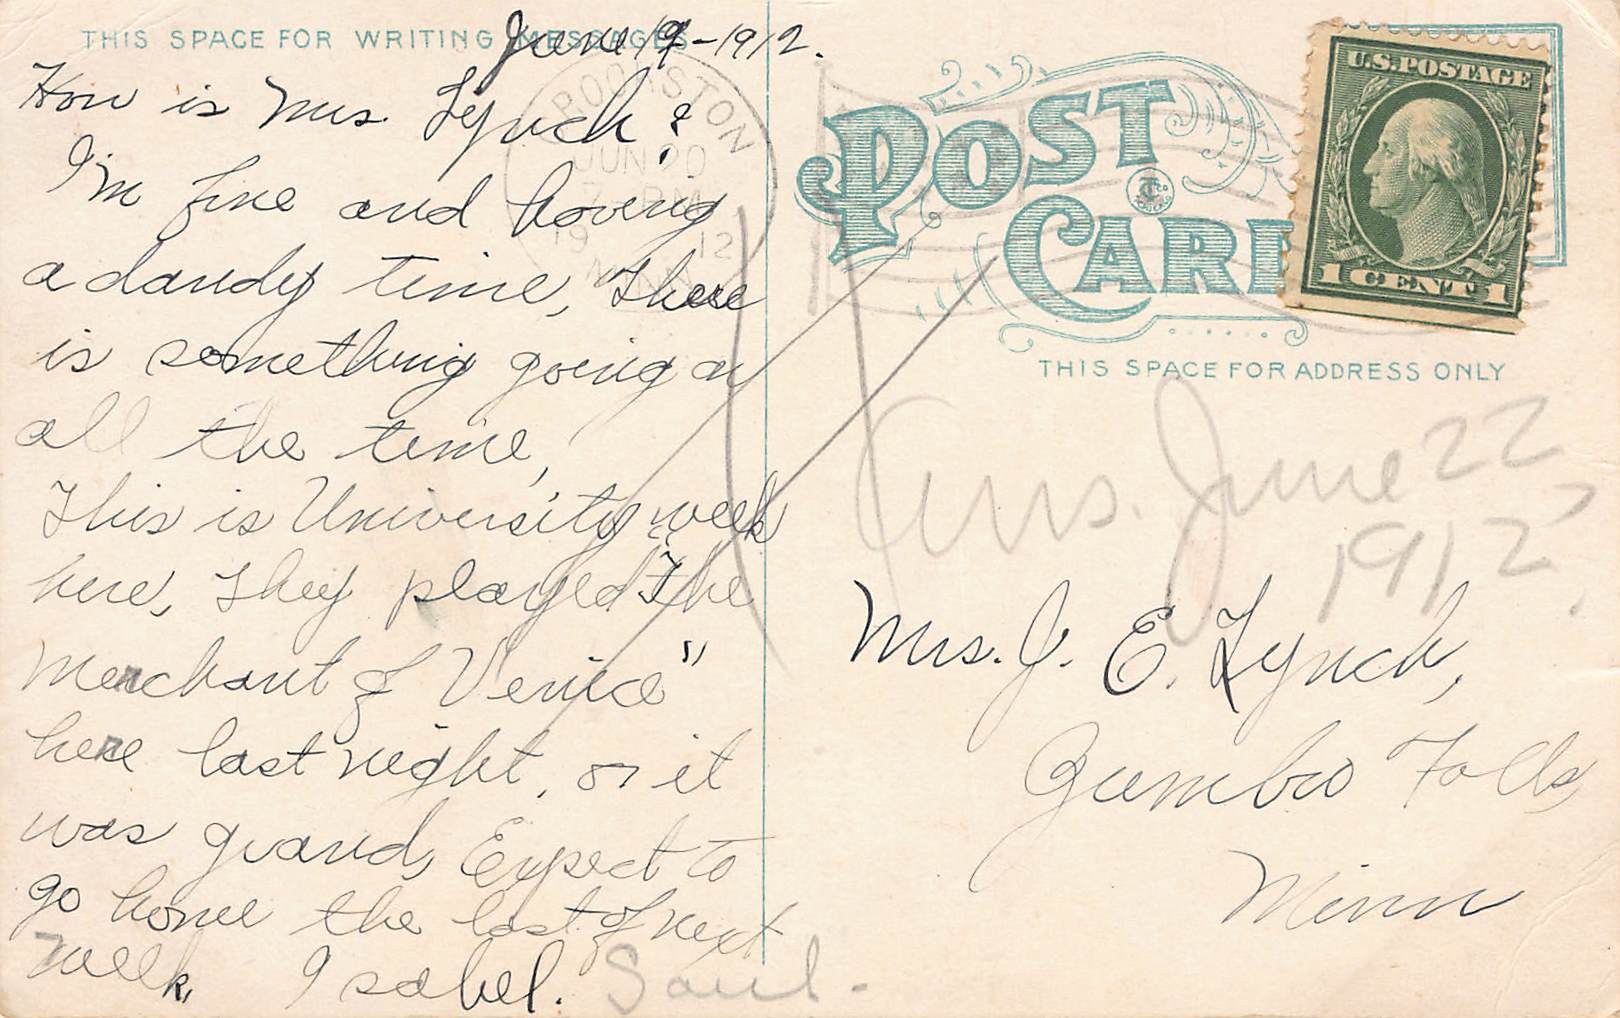 THIS SPACE FOR WRITING MESSAGES
June 19-1912.
How is Mrs. Lynch?
I'm fine and having
a dandy time, There
is something going on
all the time,
This is University week
here, They played "The
Merchant of Venice"
here last night, or it
was grand, Expect to
go home the last of next
week, Isabel.
POST
CARD
U.S.POSTAGE
1 CENT 1
THIS SPACE FOR ADDRESS ONLY
CROOKSTON
JUN 20
7 PM
1912
MINN
Ans. June 22
1912
Mrs. J. E. Lynch,
Gumbo Falls
Minn